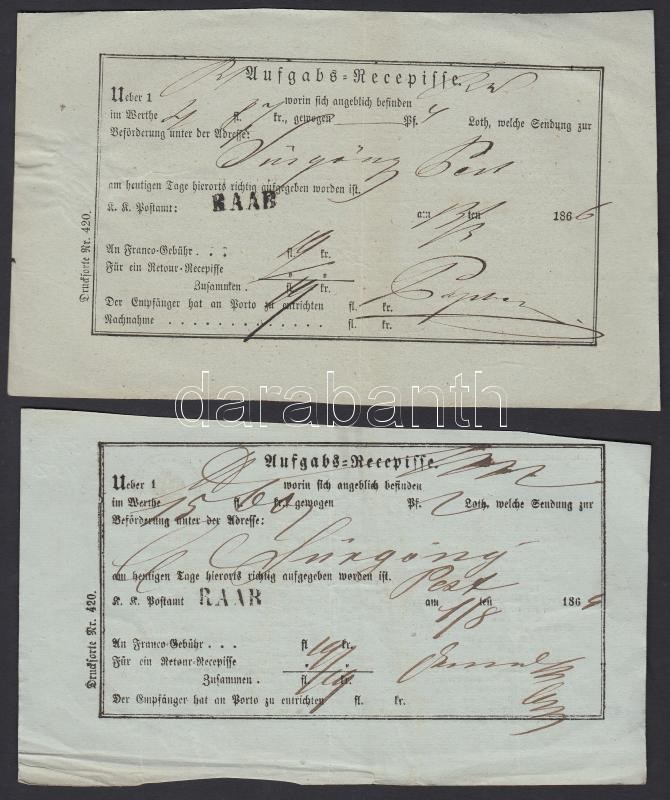 Aufgabs=Recepisse.
Ueber 1 worin sich angeblich befinden
im Werthe fl. kr., gewogen Pf. 4 Loth, welche Sendung zur
Beförderung unter der Adresse:
Sürgöny Pest
am heutigen Tage hierorts richtig aufgegeben worden ist.
K. K. Postamt: RAAB am 13/ten 3 1866
An Franco-Gebühr . . : fl. 19 kr.
Für ein Retour-Recepisse " "
Zusammen . fl. 19 kr.
Der Empfänger hat an Porto zu entrichten fl. kr.
Nachnahme . . . . . . . . . . . . . fl. kr.
Drucksorte Nr. 420.
darabanth
Aufgabs=Recepisse.
Ueber 1 worin sich angeblich befinden
im Werthe fl. kr. gewogen Pf. Loth, welche Sendung zur
Beförderung unter der Adresse:
Sürgöny
am heutigen Tage hierorts richtig aufgegeben worden ist. Pest
K. K. Postamt RAAB am 1/8 ten 1864
An Franco-Gebühr . . . fl 19 kr.
Für ein Retour-Recepisse " "
Zusammen . fl 19 kr.
Der Empfänger hat an Porto zu entrichten fl. kr.
Drucksorte Nr. 420.